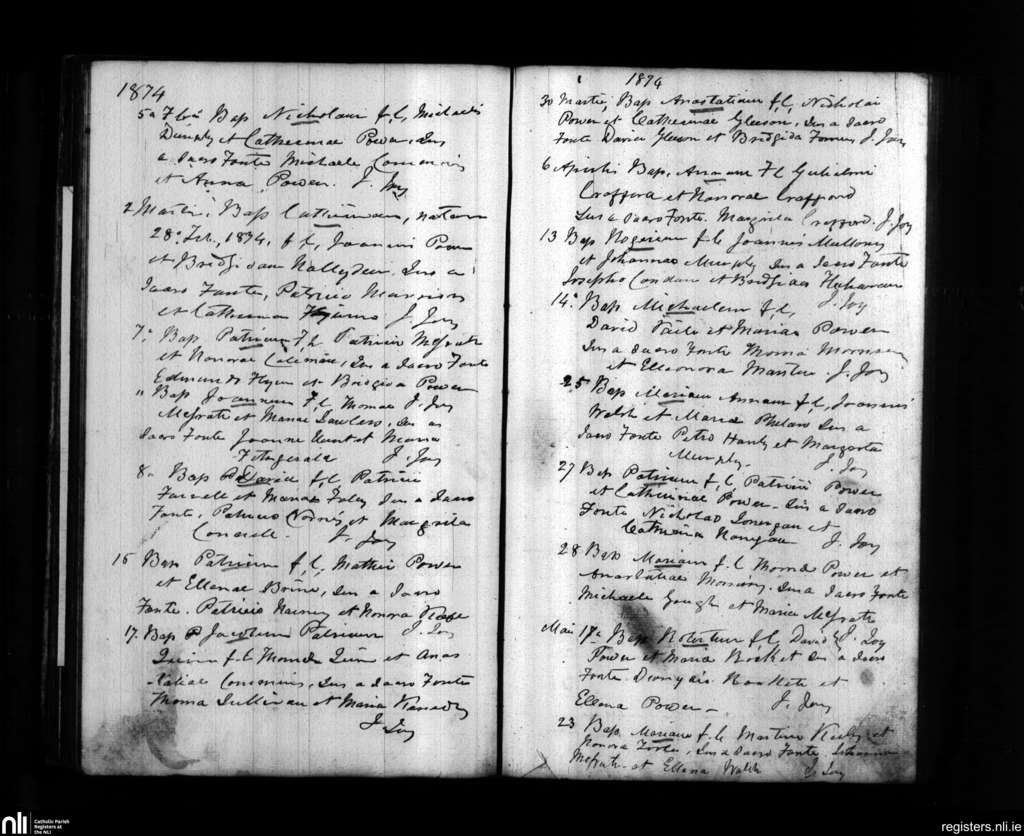 1874
5a Feb. Bap Nicholaum f. l. Michaelis
Dunphy et Catherinae Power, Sus
a Sacro Fonte Michaele Commins
et Anna Power. J. Joy
2 Martii, Bap Catherinam, natam
28a Feb. 1874, f. l, Joannis Power
et Bridgidae Sus a
Sacro Fonte, Patricio Morrison
et Catherina J. Joy
7a Bap Patricium F. L. Patricii McGrath
et Honorae Sus a Sacro Fonte
Edmundo Flynn et Bridgida Power
" Bap Joannem F. L. Thomae J. Joy
McGrath et Mariae Lawless, Sus a
Sacro Fonte Joanne Hunt et Maria
Fitzgerald J. Joy
8a Bap David f. l. Patricii
Farrell et Mariae Foley Sus a Sacro
Fonte, Patricio et Margrita
J. Joy
15 Bap Patricium f. l, Mathei Power
et Ellenae Sus a Sacro
Fonte. Patricio et Honora
17. Bap Jacobum Patricium J. Joy
Quinn f. l. Thomae Quin et Anas
tatiae Commins, Sus a Sacro Fonte
Thoma Sullivan et Maria Kennedy
J. Joy
1874
30 Martii, Bap Anastatiam f. l, Nicholai
Power et Catherinae Gleeson, Sus a Sacro
Fonte David Gleeson et Bridgida J. Joy
6 Aprilis Bap. Annam F. L. Gulielmi
Crafford et Honorae Crafford
Sus a Sacro Fonte. Margrita Crafford. J. Joy
13 Bap Rogerium f. l. Joannis Mullony
et Johannae Murphy, Sus a Sacro Fonte
Josepho Condon et Bridgida
14a Bap Michaelem f. l, J. Joy
David et Mariae Power
Sus a Sacro Fonte Thoma Morrissey
et Elleonora J. Joy
25 Bap Mariam Annam f. l, Joannis
Walsh et Maria Phelan Sus a
Sacro Fonte Petro et Margarita
Murphy. J. Joy
27 Bap Patricium f. l, Patricii Power
et Catherinae Power. Sus a Sacro
Fonte Nicholao Lonergan et
Catherina J. Joy
28 Bap Mariam f. l. Thomae Power et
Anastatiae Morrissy. Sus a Sacro Fonte
Michaele Gough et Maria McGrath
Maii 17a Bap Robertum f. l, David J. Joy
Power et Maria Rocket Sus a Sacro
Fonte Dionysio Rockett et
Ellena Power J. Joy
23 Bap. Mariam f. l. Martini Kiely et
Honora Sus a Sacro Fonte,
McGrath et Ellena Walsh J. Joy
nli
Catholic Parish
Registers at
the NLI
registers.nli.ie